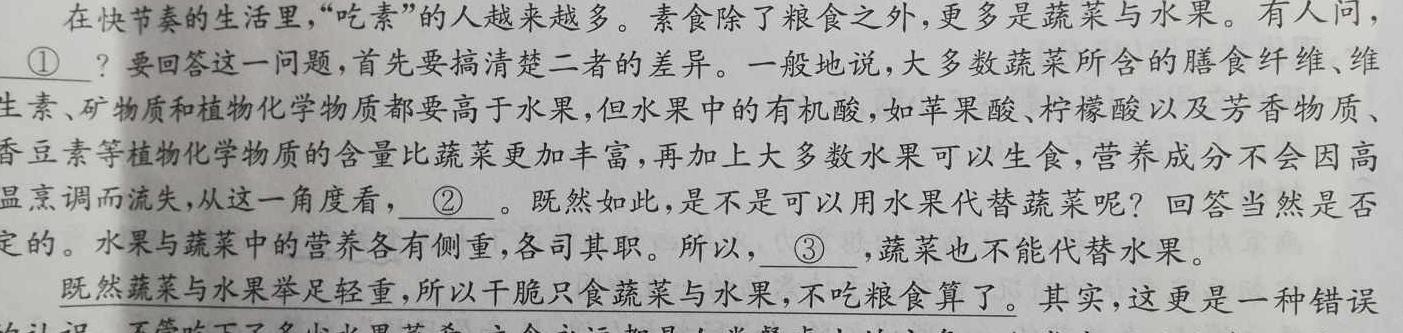 在快节奏的生活里，“吃素”的人越来越多。素食除了粮食之外，更多是蔬菜与水果。有人问，
①？要回答这一问题，首先要搞清楚二者的差异。一般地说，大多数蔬菜所含的膳食纤维、维
生素、矿物质和植物化学物质都要高于水果，但水果中的有机酸，如苹果酸、柠檬酸以及芳香物质、
香豆素等植物化学物质的含量比蔬菜更加丰富，再加上大多数水果可以生食，营养成分不会因高
温烹调而流失，从这一角度看，②。既然如此，是不是可以用水果代替蔬菜呢？回答当然是否
定的。水果与蔬菜中的营养各有侧重，各司其职。所以，③，蔬菜也不能代替水果。
既然蔬菜与水果举足轻重，所以干脆只食蔬菜与水果，不吃粮食算了。其实，这更是一种错误